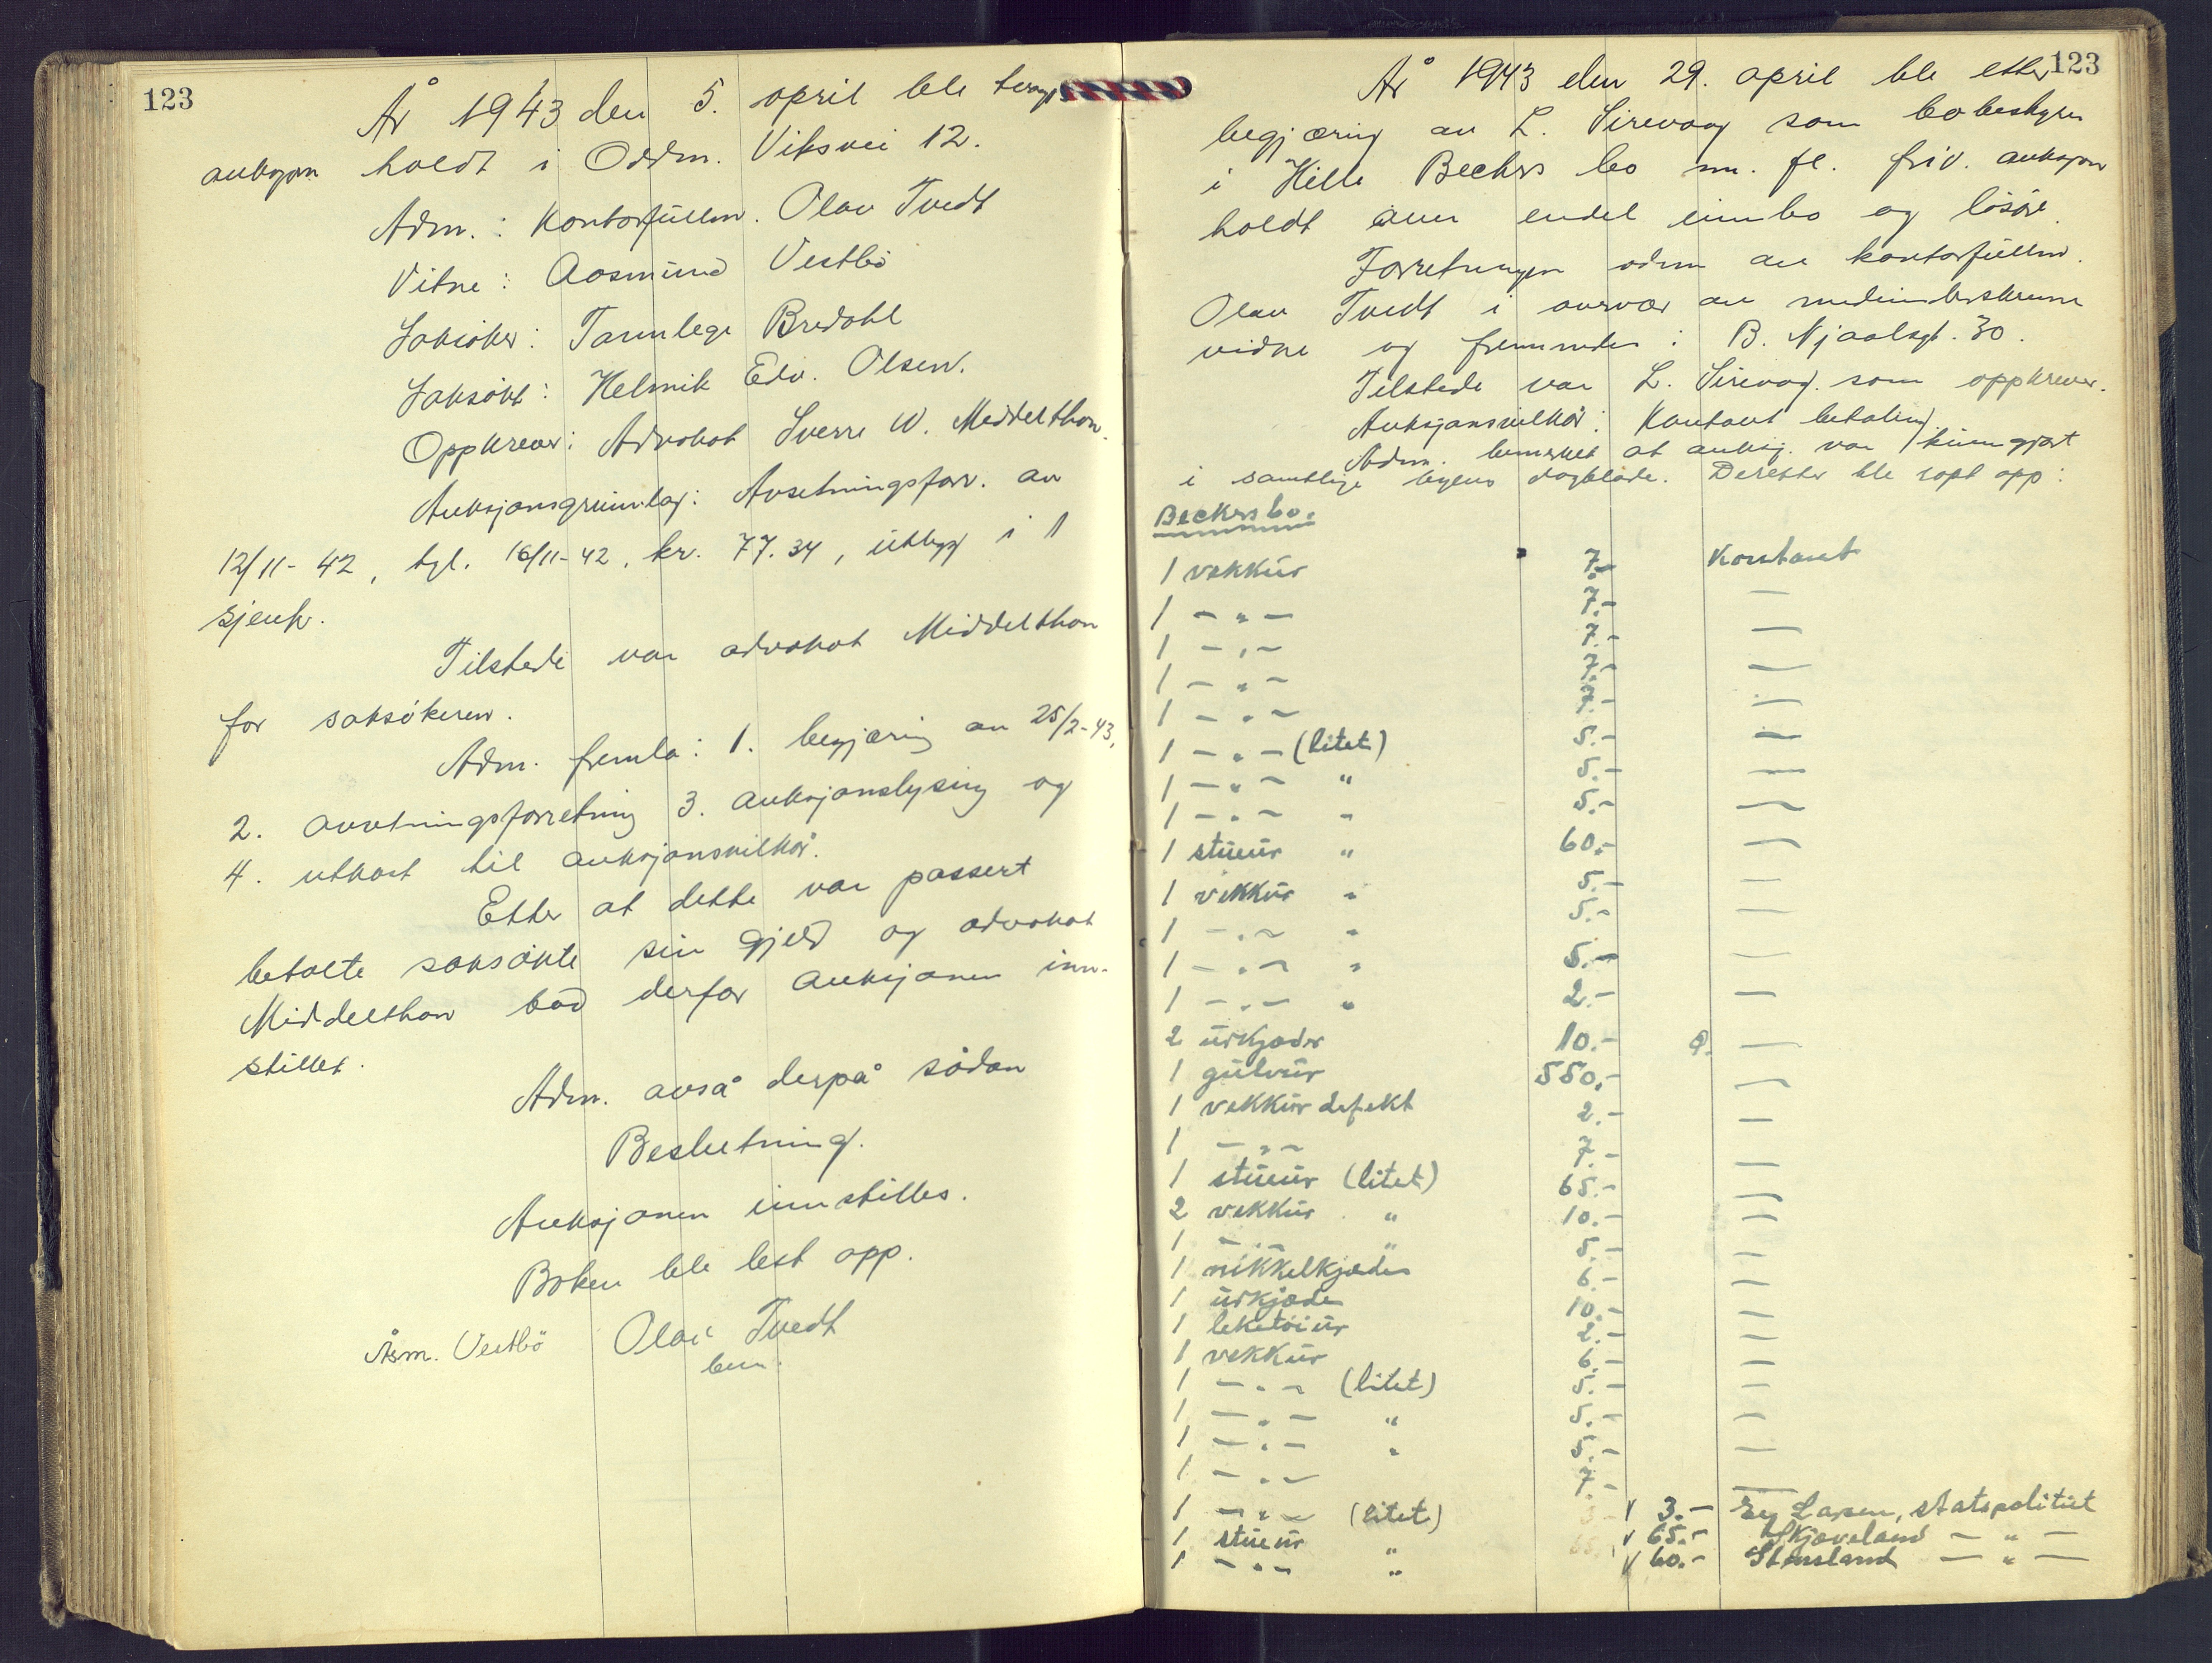 123
År 1943 den 5. april ble tvangs
auksjon holdt i Oddm. Viksvei 12.
Adm.: Kontorfullm. Olav Tvedt
Vitne: Aasmund Vestbö
Saksöker: Tannlege Bredahl
Saksökt: Helmik Edv. Olsen.
Oppkrever: Advokat Sverre W. Middelthon.
Auksjonsgrunnlag: Avsetningsforr. av
12/11-42, tgl. 16/11-42, kr. 77.34, utlegg i 1
sjenk.
Tilstede var advokat Middelthon
for saksökeren.
Adm. fremla: 1. begjæring av 25/2-43,
2. avsetningsforretning 3. auksjonslysing og
4. utkast til auksjonsvilkår.
Etter at dette var passert
betalte saksökte sin gjeld og advokat
Middelthon bad derfor auksjonen inn-
stillet.
Adm. avsa derpå sådan
Beslutning.
Auksjonen innstilles.
Boken ble lest opp.
Åsm. Vestbö Olav Tvedt
bem.
123
År 1943 den 29. april ble etter
begjæring av L. Sirevaag som bobestyrer
i Hille Beckers bo m. fl. friv. auksjon
holdt over endel innbo og lösöre.
Forretningen adm av kontorfullm.
Olav Tvedt i overvær av medunderskrevne
vidne og fremmedes i B. Njaalsgt. 30.
Tilstede var L. Sirevag. som oppkrever.
Auksjonsvilkår: Kontant betaling.
Adm. bemerket at auksj. var kunngjort
i samtlige byens dagblade. Deretter ble ropt opp:
Beckers bo.
1 vekkur 7.- Kontant
1 - " - 7.- —
1 - " - 7.- —
1 - " - 7.- —
1 - " - 7.- —
1 - " - (litet) 5.- —
1 - " - " 5.- —
1 - " - " 5.- —
1 stueur " 60.- —
1 vekkur " 5.- —
1 - " - " 5.- —
1 - " - " 5.- —
1 - " - " 2.- —
2 urkjeder 10.- —
1 gulvur 550.- —
1 vekkur defekt 2.- —
1 - " - 7.- —
1 stueur (litet) 65.- —
2 vekkur " 10.- —
1 - " - " 5.- —
1 nikkelkjede 6.- —
1 urkjede 10.- —
1 leketöiur 2.- —
1 vekkur 6.- —
1 - " - (litet) 5.- —
1 - " - " 5.- —
1 - " - " 5.- —
1 - " - 7.- —
1 - " - (litet) v 3.- Larsen, statspolitiet
1 stueur " v 65.- Skjæveland - " -
1 - " - " v 60.- Stensland - " -